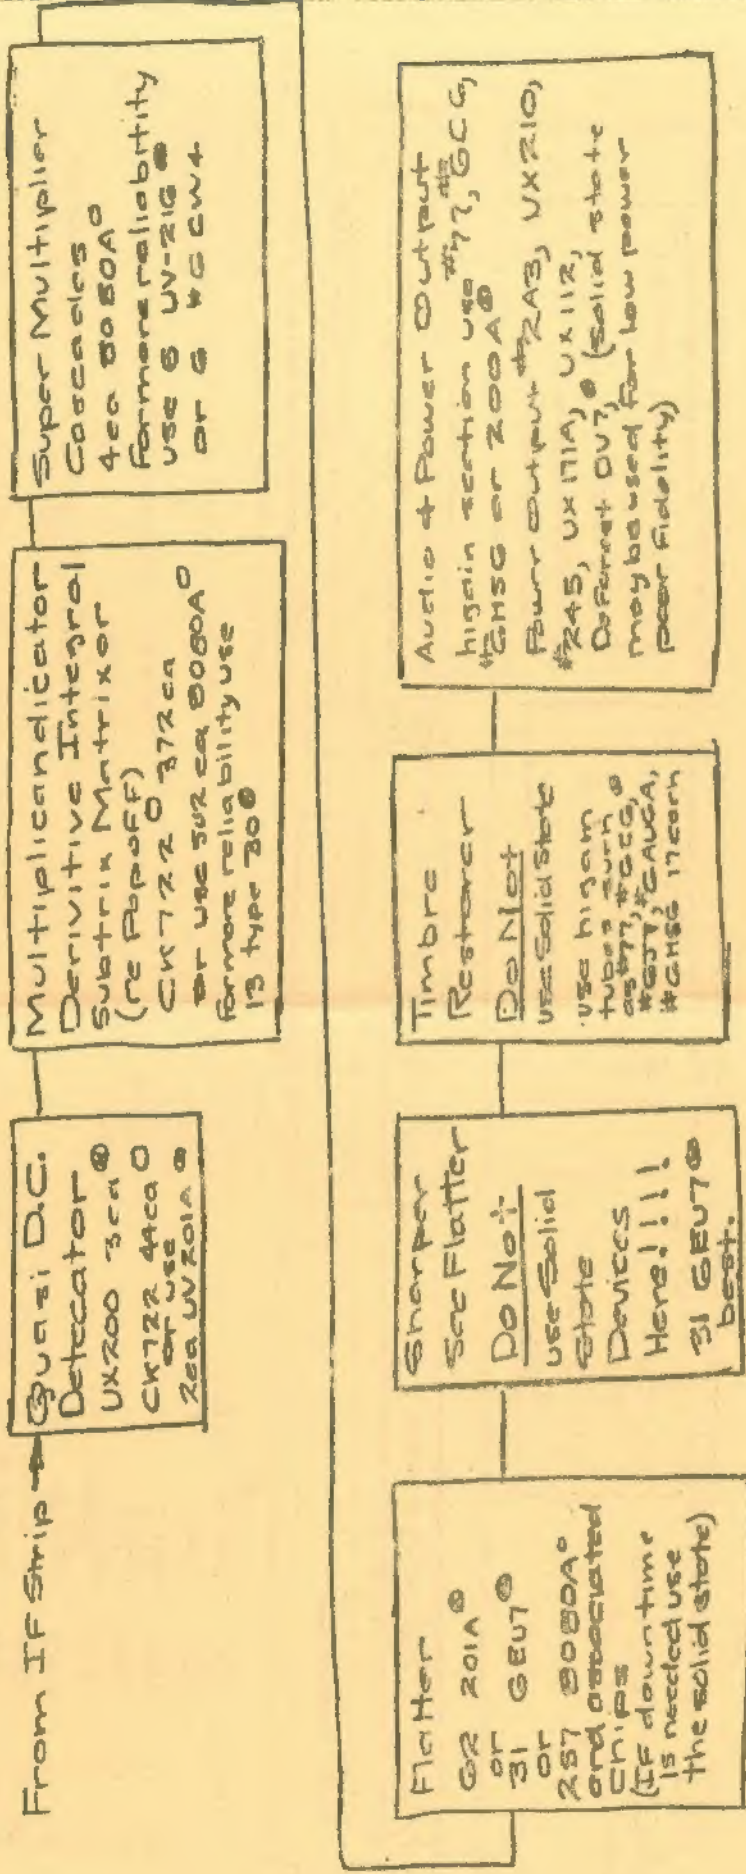 From IF Strip →
Quasi D.C.
Detecator
UX200 3ea
CK722 44ea
or use
2ea UV201A
Multiplicandicator
Derivitive Integral
Subtrix Matrixor
(re Popoff)
CK722 372ea
or use 502 ea 8080A
For more reliability use
13 type 30
Super Multiplier
Cascades
4ea 8080A
For more reliabitity
use 6 UV-216
or 6 #6CW4
Flatter
62 201A
or
31 6EU7
or
257 8080A
and associated
Chips
(IF down time
is needed use
the solid state)
Sharper
See Flatter
Do Not
use Solid
State
Devices
Here!!!!!
31 6EU7
best.
Timbre
Restorer
Do Not
use Solid State
use higain
tubes such
as #77, #6C6,
#6J7, #6AU6A,
#6HS6 17 each
Audio + Power Output
higain section use #77, #6C6,
#6HS6 or 200A
Power Output #2A3, UX210,
#245, UX171A, UX112,
DeForrest DV7, (solid state
may be used for low power
poor fidelity)